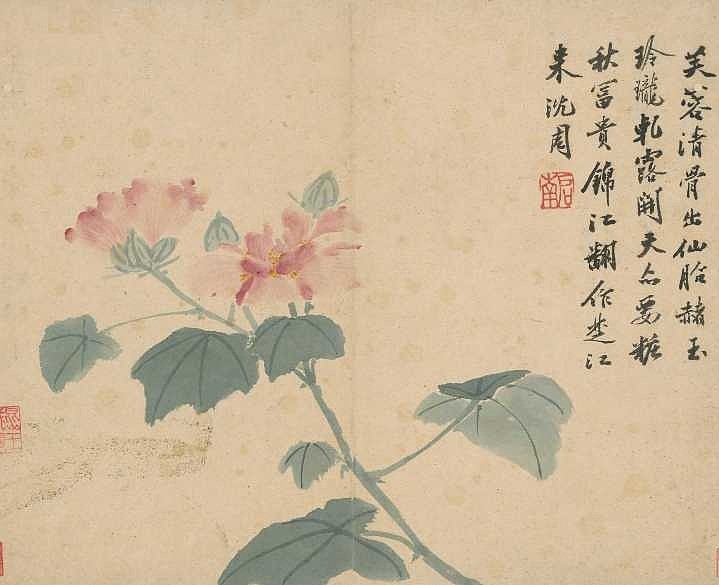 芙蓉清骨出仙胎赭玉
玲瓏軋露開天亦要粧
秋富貴錦江翻作楚江
来沈周
石田